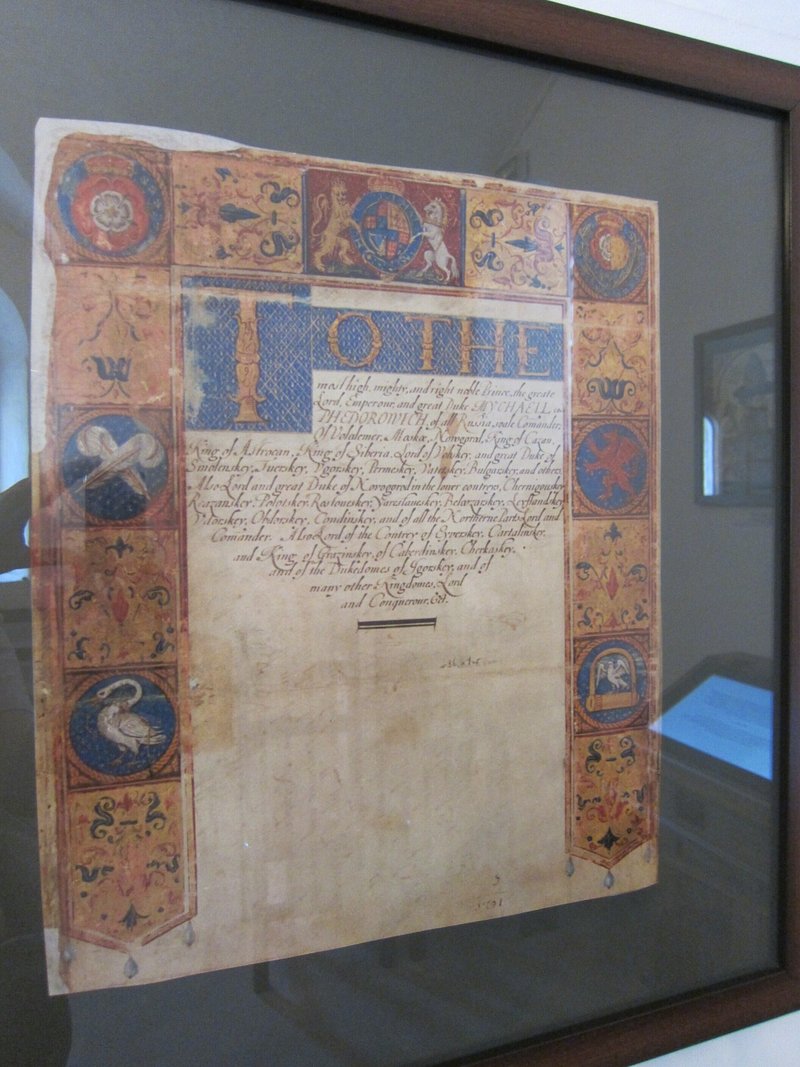 TO THE
most high, mighty, and right noble Prince, the greate
Lord, Emperour, and great Duke MYCHAELL
PHEDOROWICH, of all Russia, Comander,
Of Volodemer, Mosko, Novogrod, King of Cazan,
King of Astrocan, King of Siberia, Lord of Vobsky, and great Duke of
Smolenskey, Tuerskey, Vgorskey, Permeskey, Vatetskey, Bulgorskey, and others,
Also Lord and great Duke of Novogrod in the lower contrey, Chernigouskey,
Reazanskey, Polotskey, Rostoueskey, Yareslaueskey, Belozarskey, Leyflandskey,
Vdorskey, Obdorskey, Condinskey, and of all the Northerne Parts Lord and
Comander. Also Lord of the Contrey of Eyverskey, Cartalinskey,
and King of Grazinskey, of Caberdinskey, Cherkaskey,
and of the Dukedomes of Igorskey, and of
many other Kingdomes, Lord
and Conquerour, &c.